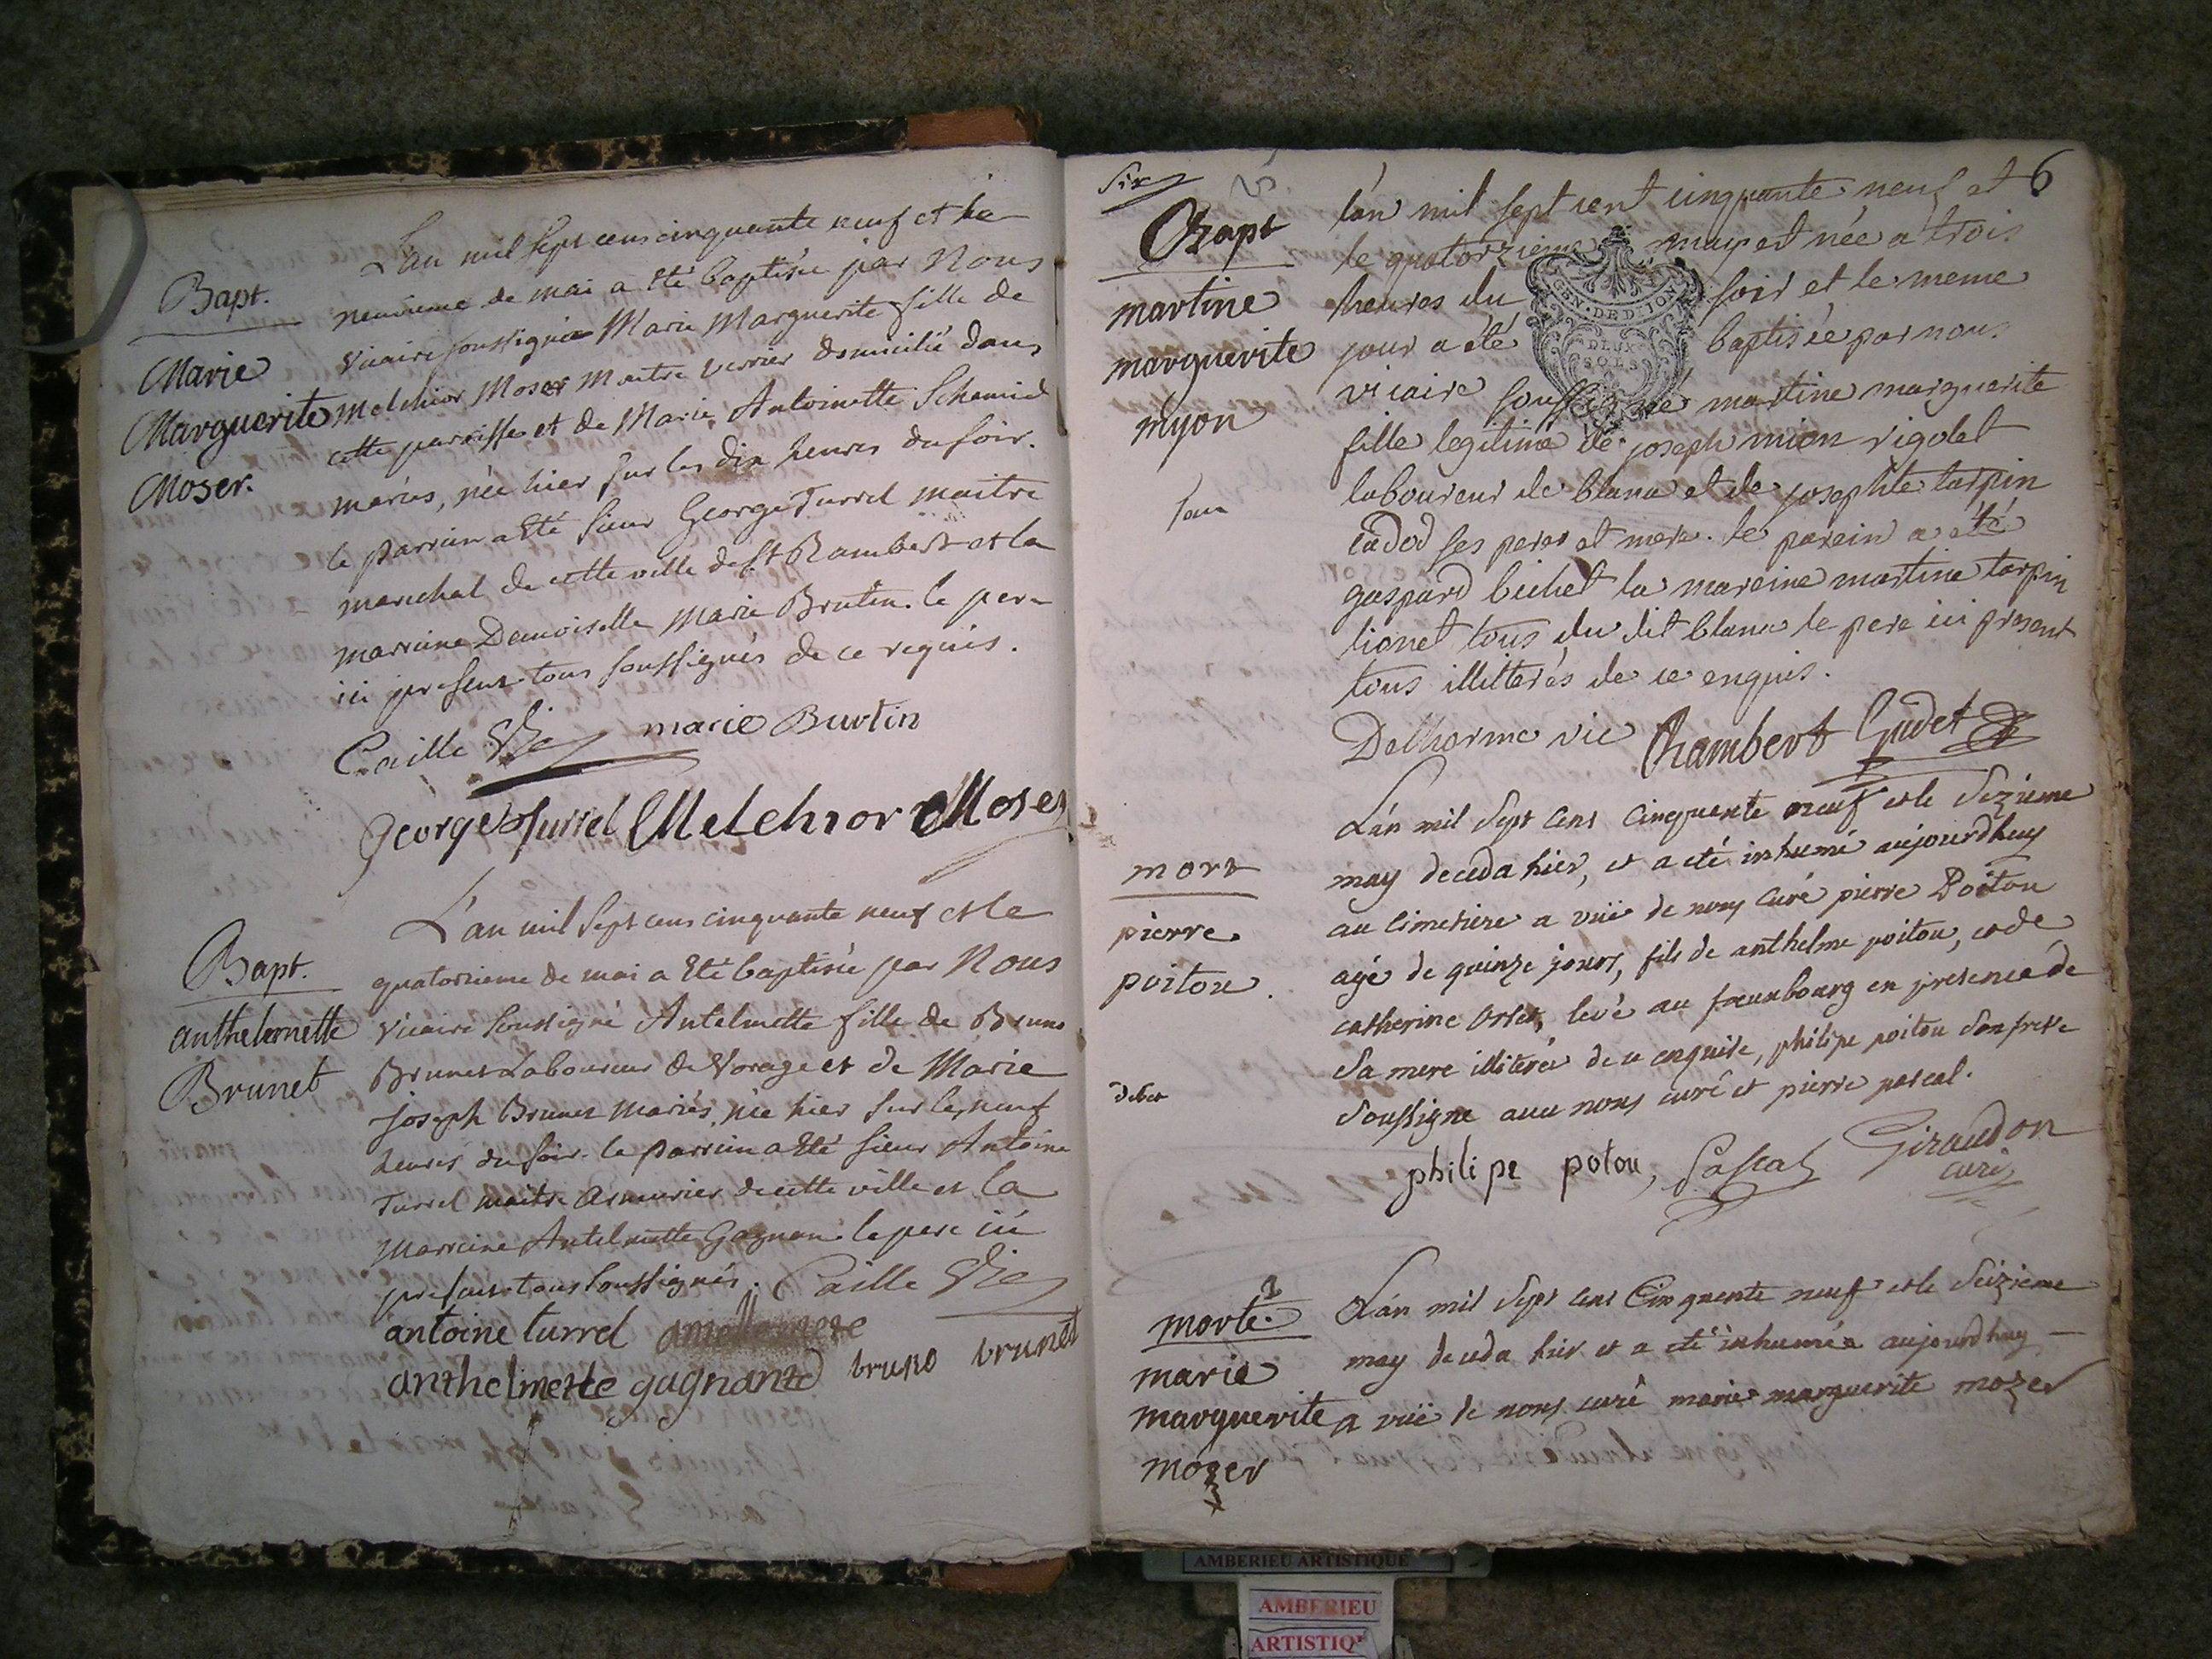 Bapt.
Marie
Marguerite
Moser.
L'an mil sept cens cinquante neuf et le
neuvieme de mai a Eté baptisée par Nous
vicaire soussigné Marie Marguerite fille de
Melchior Moser Maitre verrier domicilié dans
cette parroisse et de Marie Antoinette Schemid
mariés, née hier sur les dix heures du soir.
le parrain a Eté sieur George Turrel maitre
marechal de cette ville de St Rambert et la
marraine Demoiselle Marie Brutin. le pere
ici present tous soussignés de ce requis.
Caille Vic marie Burtin
george turrel Melchior Moser
Bapt.
anthelemette
Brunet
L'an mil sept cens cinquante neuf et le
quatorzieme de mai a Eté baptisée par Nous
Vicaire soussigné Antelmette fille de Bruno
Brunet Laboureur de Vorage et de Marie
joseph Brunet mariés, née hier sur les neuf
heures du soir. le parrain a Eté sieur Antoine
Turrel maitre armurier de cette ville et la
marraine Antelmette Gagnan. le pere ici
present tous soussignés. Caille Vic
antoine turrel
anthelmette gagnant bruno brunet
six
6
Bapt
martine
marguerite
myon
l'an mil sept cent cinquante neuf et
le quatorzieme may est née a trois
heures du soir et le meme
jour a été baptisée par nous
vicaire soussigné martine marguerite
fille legitime de joseph mion rigolet
laboureur de blana et de josephte tarpin
cadod ses peres et mere. le parein a été
gaspard bichet la mareine martine tarpin
lionet tous du dit blana le pere ici present
tous illitterés de ce enquis.
Delhorme vic Chambert Gudet
GEN. DE DIJON
DEUX
SOLS
mort
pierre
poitou.
L'an mil sept cens cinquente neuf et le seizieme
may deceda hier, et a eté inhumé aujourdhuy
au cimetiere a vüe de nous curé pierre Poitou
agé de quinze jours, fils de anthelme poitou, et de
catherine Orset, levé au fauxbourg en presence de
sa mere illiterée de ce enquise, philipe poitou son frere
soussigne avec nous curé et pierre pascal.
philipe potou, Pascal Giraudon
curé
morte.
marie
marguerite
mozer
L'an mil sept cens Cinquente neuf et le seizieme
may deceda hier et a eté inhumée aujourdhuy
a vüe de nous curé marie marguerite mozer
AMBERIEU ARTISTIQUE
AMBERIEU
ARTISTIQ